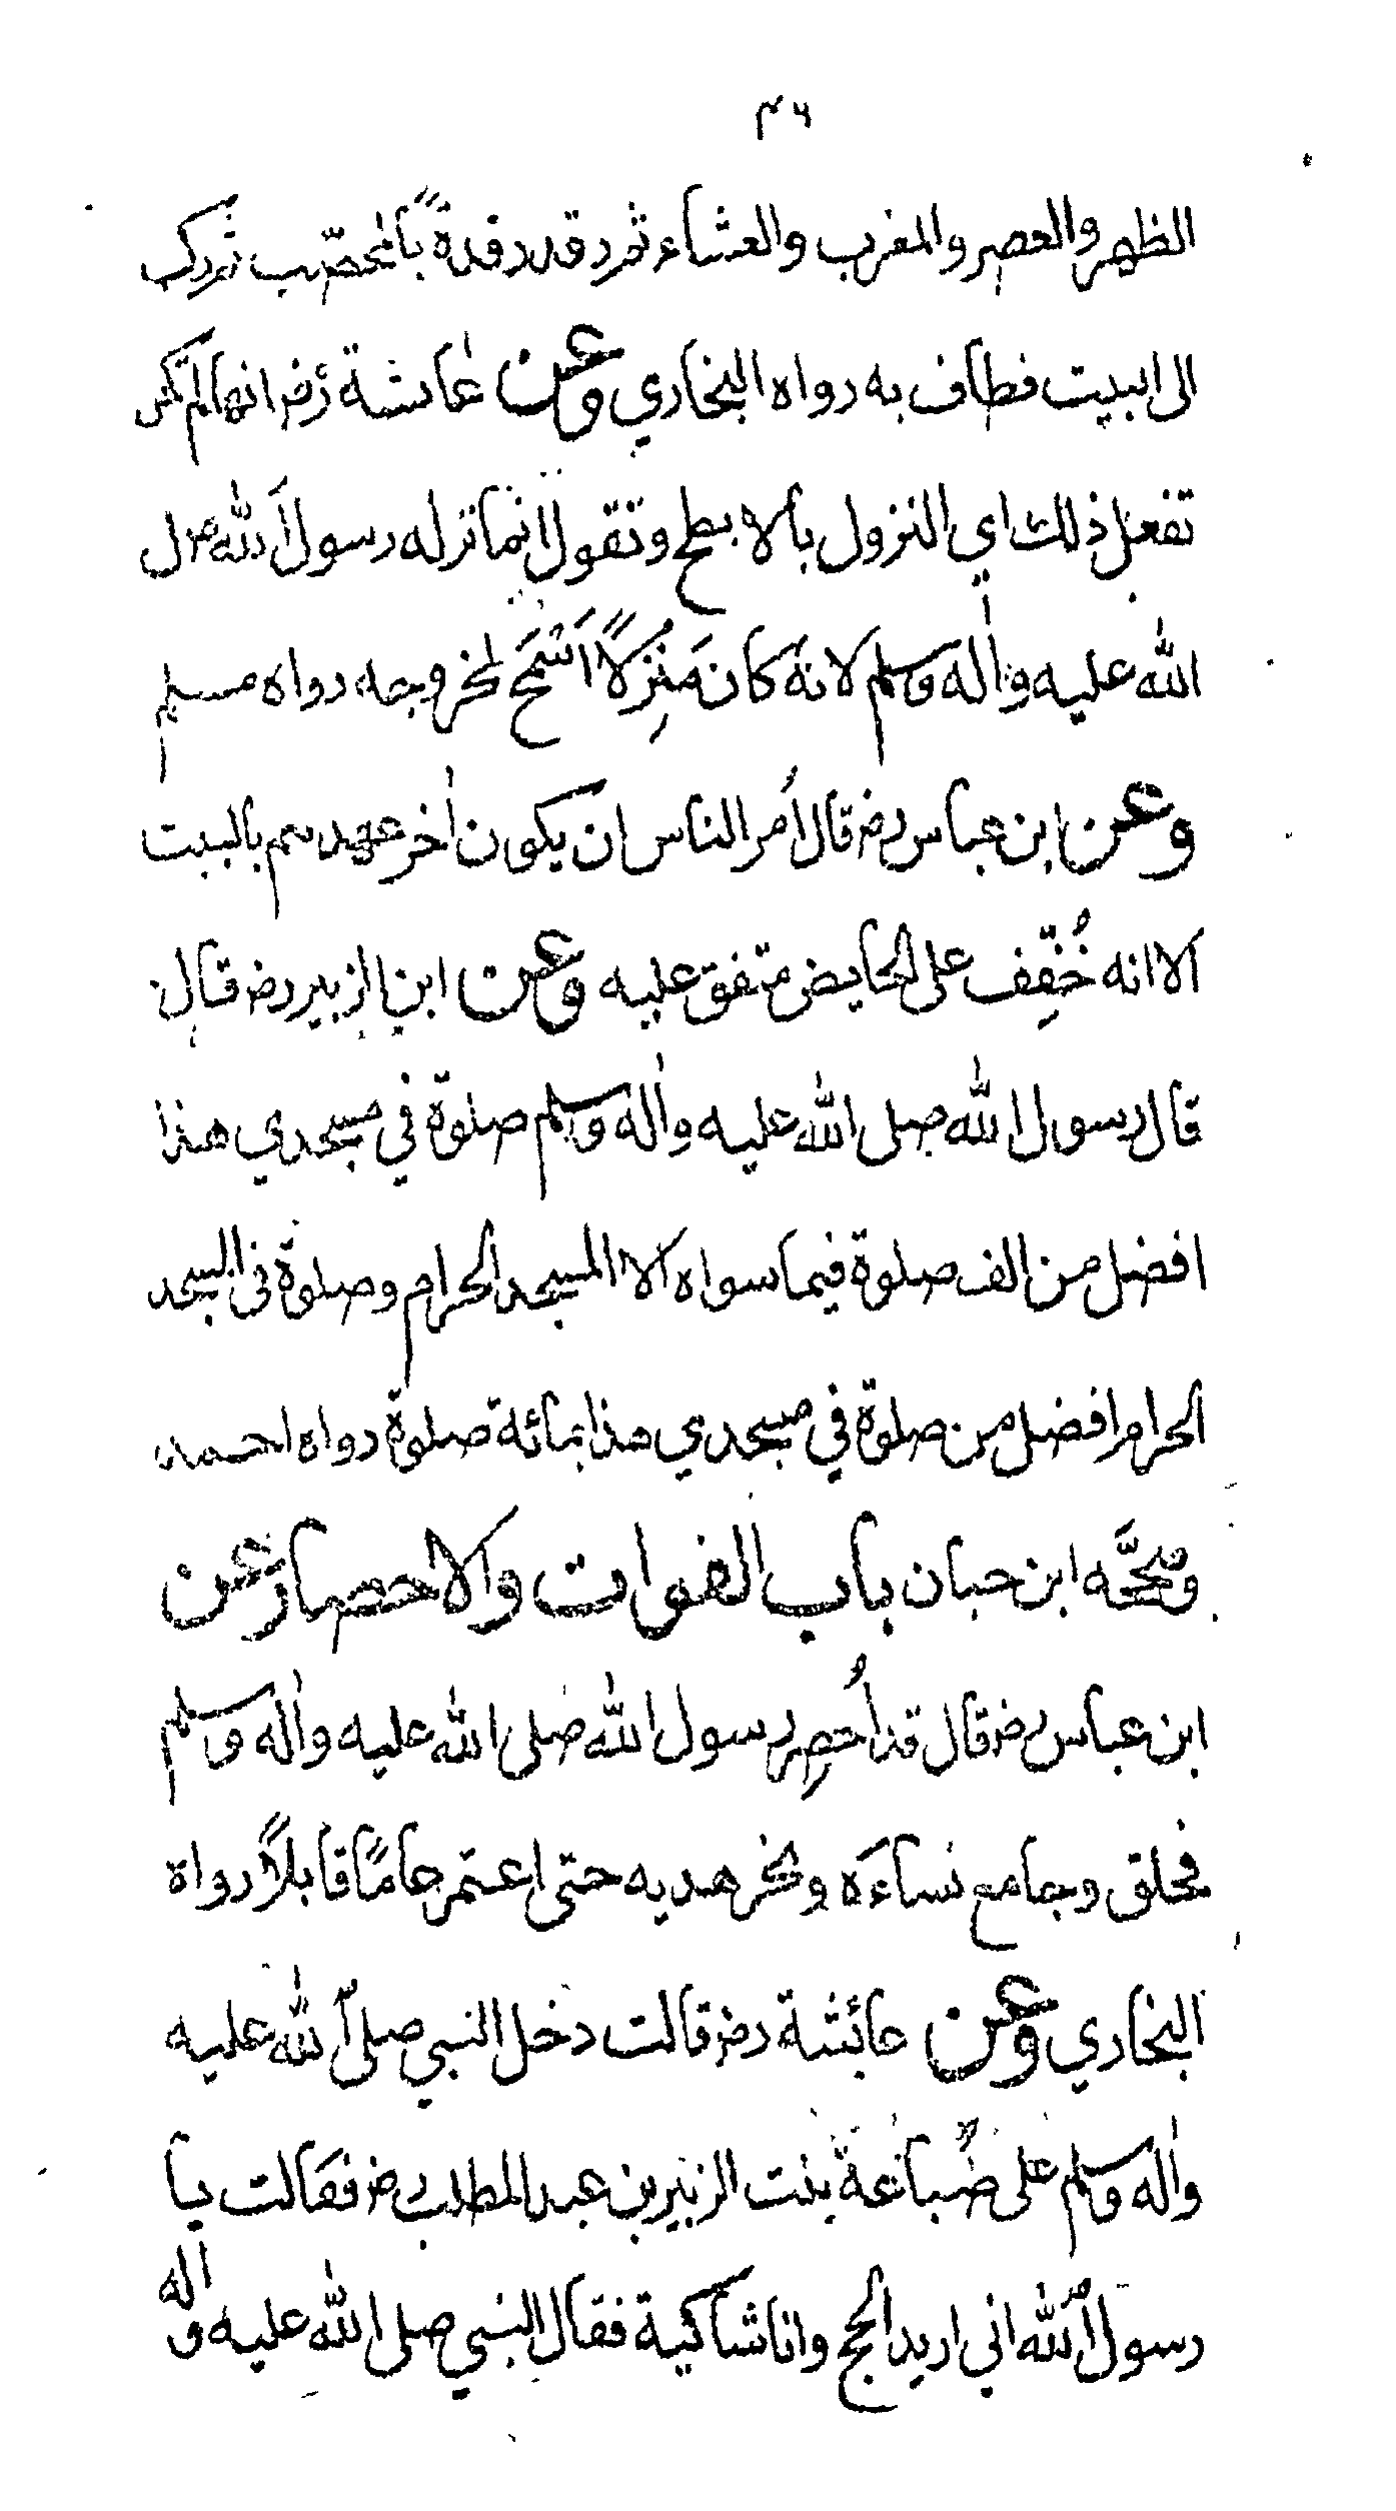 ٤٦
الظهر والعصر والمغرب والعشاء ثم رقد رقدةً بالمحصّب ثم ركب
الى البيت فطاف به رواه البخاري وعن عائشة رض انها لم تكن
تفعل ذلك اي النزول بالابطح وتقول انما نزله رسول الله صل
الله عليه واٰله وسلم لانه كان مَنْزِلًا اَسْمَحَ لخروجه رواه مسلم
وعن ابن عباس رض قال اُمر الناس ان يكون اٰخر عهدهم بالبيت
الا انه خُفِّف على الحايض متفق عليه وعن ابن الزبير رض قال
قال رسول الله صلى الله عليه واٰله وسلم صلوة في مسجدي هذا
افضل من الف صلوة فيما سواه الا المسجد الحرام وصلوة فى المسجد
الحرام افضل من صلوة في مسجدي هذا بمائة صلوة رواه احمد
وصححَّه ابن حبان باب الفوات والاحصار عن
ابن عباس رض قال قد اُحصِر رسول الله صلى الله عليه واٰله وسلم
فحلق وجامع نساءَه ونحر هديه حتى اعتمر عامًا قابلًا رواه
البخاري وعن عائشة رض قالت دخل النبي صلى الله عليه
واٰله وسلم على ضُباعة بنت الزبير بن عبد المطلب رض فقالت يا
رسول الله اني اريد الحج وانا شاكية فقال النبي صلى الله عليه واله